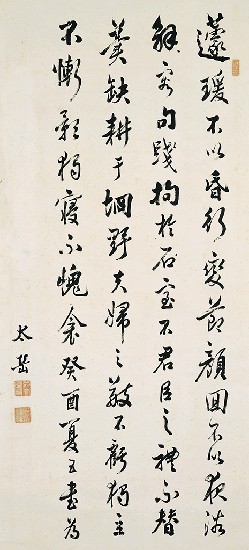 蘧瑗不以昏行變節顏回不以夜浴
容句踐拘於石室君臣之禮不替
冀缺耕于坰野夫婦之敬不虧獨立
不慚影獨寢不愧衾癸酉夏五書為
太岳